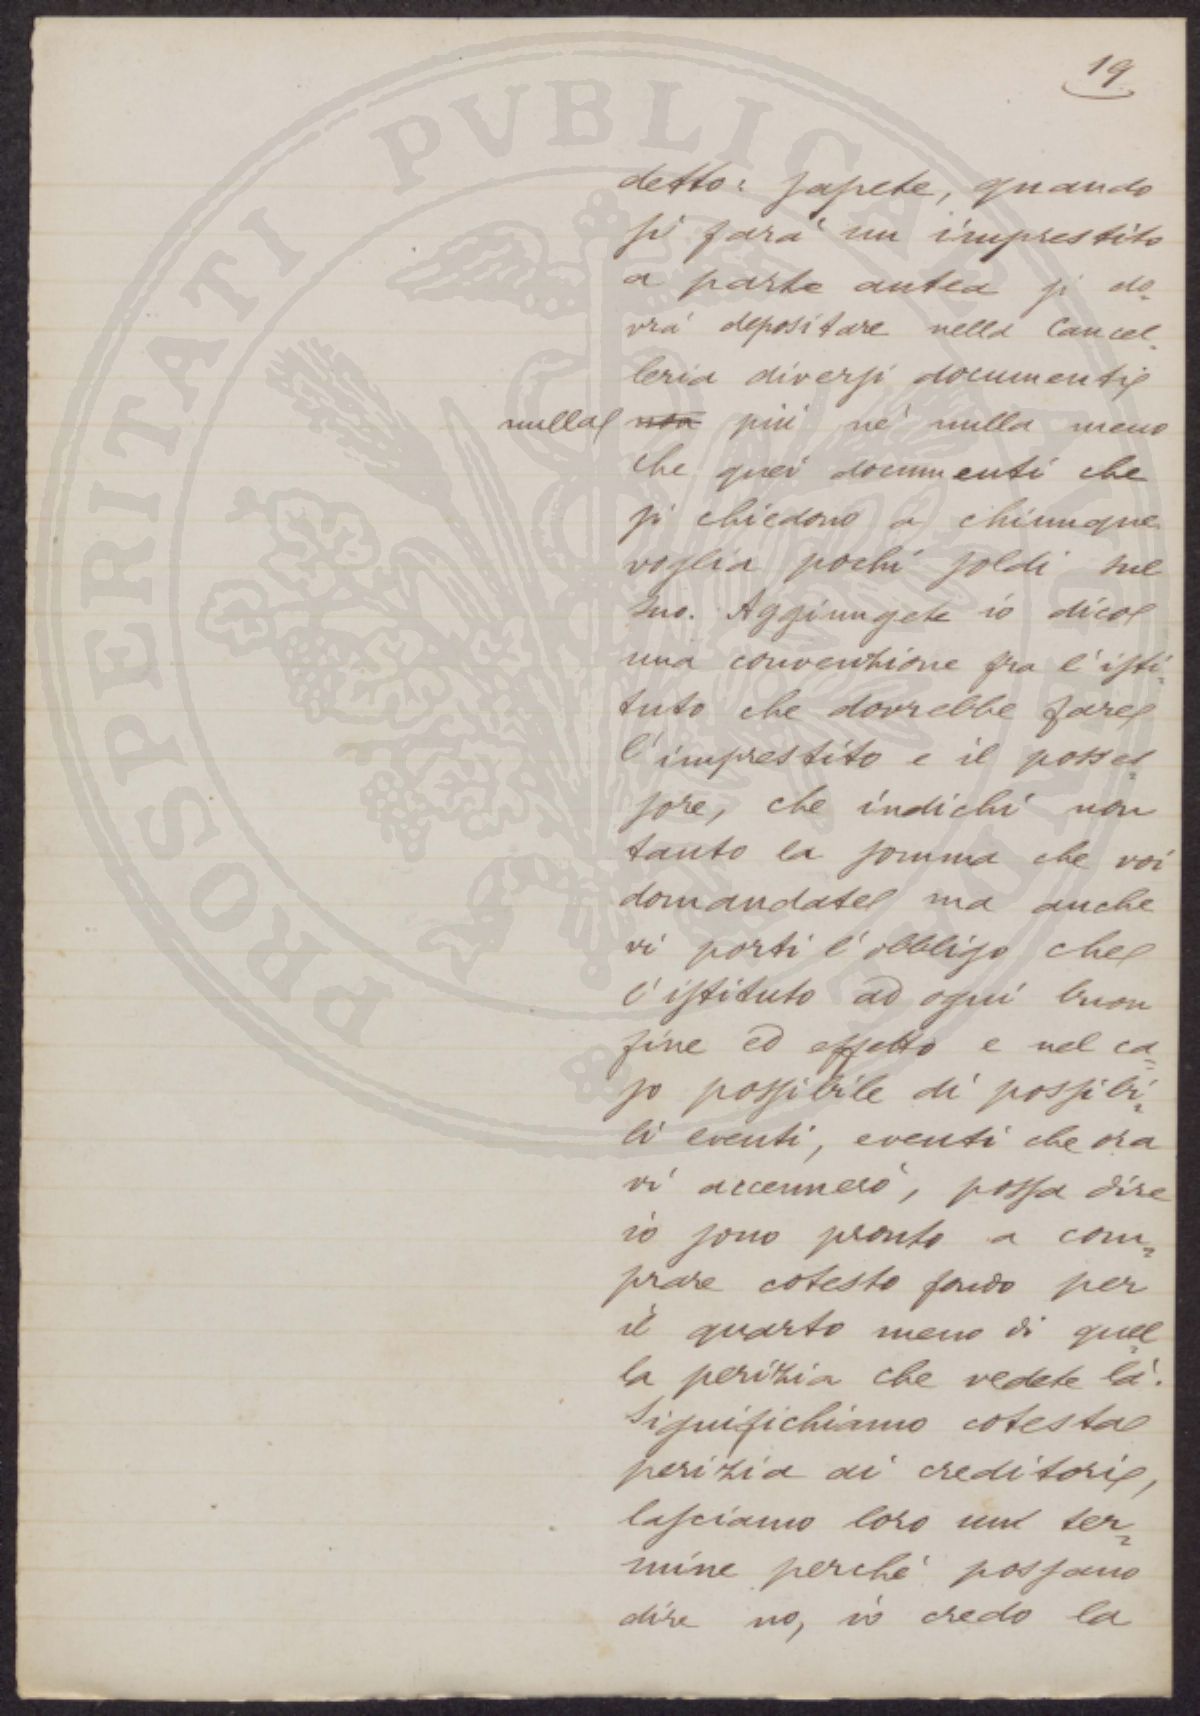 19
detto: sapete, quando
si farà un imprestito
a parte antea si do-
vrà depositare nella Cancel-
leria diversi documenti
nulla non più nè nulla meno
che quei documenti che
si chiedono a chiunque
voglia pochi soldi sul
suo. Aggiungete io dico
una convenzione fra l'isti-
tuto che dovrebbe fare
l'imprestito e il posses-
sore, che indichi non
tanto la somma che voi
domandate ma anche
vi porti l'obbligo che
l'istituto ad ogni buon
fine ed effetto e nel ca-
so possibile di possibi-
li eventi, eventi che ora
vi accennerò, possa dire
io sono pronto a com-
prare cotesto fondo per
il quarto meno di quel-
la perizia che vedete là.
Significhiamo cotesta
perizia ai creditori,
lasciamo loro un ter-
mine perchè possano
dire no, io credo la
PROSPERITATI PVBLICAE